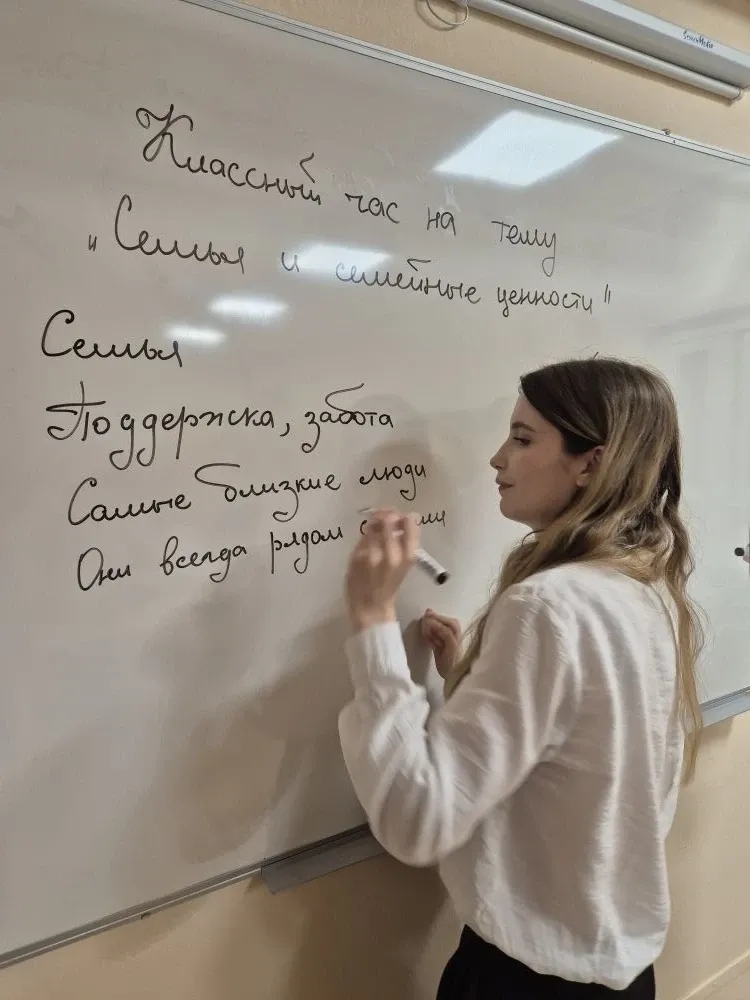 Классный час на тему
"Семья и семейные ценности"
Семья
Поддержка, забота
Самые близкие люди
Они всегда рядом